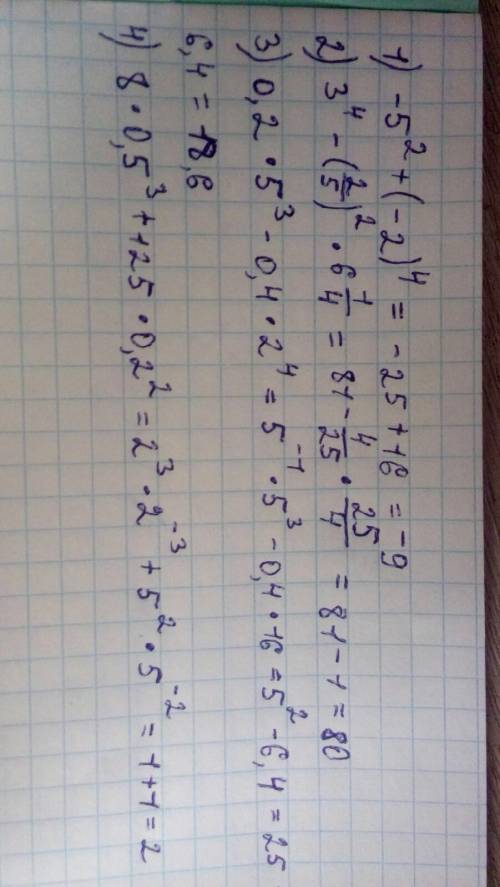 1) -5² + (-2)⁴ = -25 + 16 = -9
2) 3⁴ - (2/5)² · 6 1/4 = 81 - 4/25 · 25/4 = 81 - 1 = 80
3) 0,2 · 5³ - 0,4 · 2⁴ = 5⁻¹ · 5³ - 0,4 · 16 = 5² - 6,4 = 25
6,4 = 18,6
4) 8 · 0,5³ + 125 · 0,2² = 2³ · 2⁻³ + 5² · 5⁻² = 1 + 1 = 2